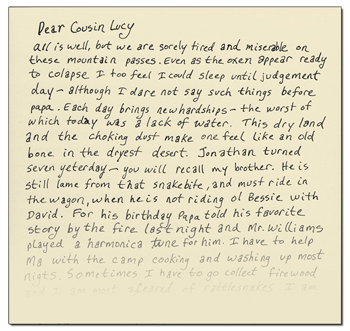 Dear Cousin Lucy
All is well, but we are sorely tired and miserable on
these mountain passes. Even as the oxen appear ready
to colapse I too feel I could sleep until judgement
day - although I dare not say such things before
papa. Each day brings new hardships - the worst of
which today was a lack of water. This dry land
and the choking dost make one feel like an old
bone in the dryest desert. Jonathan turned
seven yeterday - you will recall my brother. He is
still lame from that snakebite, and must ride in
the wagon, when he is not riding ol Bessie with
David. For his birthday Papa told his favorite
story by the fire last night and Mr. Williams
played a harmonica tune for him. I have to help
Ma with the camp cooking and washing up most
nigts. Sometimes I have to go collect firewood
and I am most afeared of rattlesnakes I am